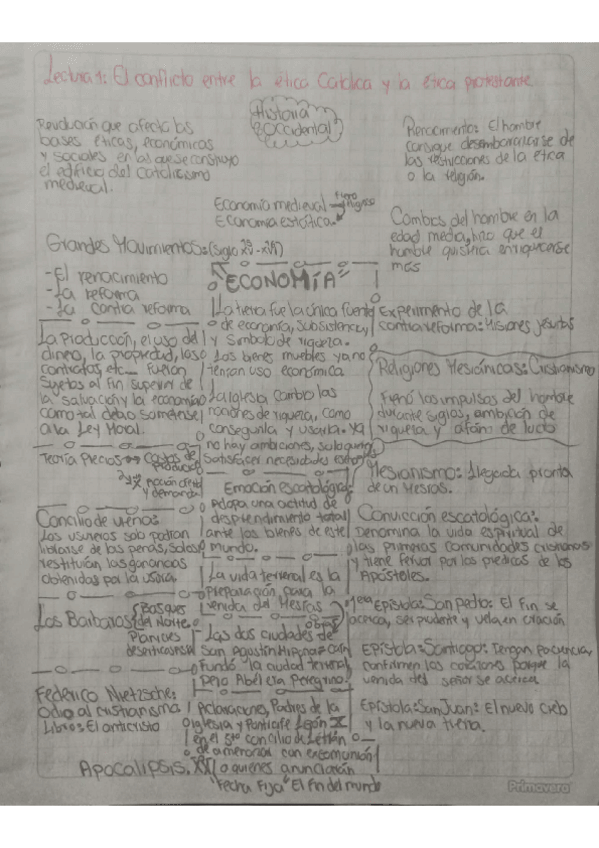 Lectura 1: El conflicto entre la ética Católica y la ética protestante
Historia
Occidental
Revolución que afecta las
bases éticas, económicas
y sociales en las que se construyo
el edificio del catolicismo
medieval.
Renacimiento: El hombre
consigue desembarazarse de
las restricciones de la ética
o la religión.
Economía medieval
Economía estática.
Cambios del hombre en la
edad media, hizo que el
hombre quisiera enriquecerse
más
Grandes Movimientos: (Siglo XV-XVI)
- El renacimiento
- La reforma
- La contra reforma
"ECONOMÍA"
La tierra fue la única fuente
de economía, subsistencia,
y símbolo de riqueza.
Los bienes muebles ya no
tenían uso económica
La Iglesia, cambio las
nociones de riqueza, como
conseguirla y usarla. Ya
no hay ambiciones, solo quieren
satisfacer necesidades
Experimento de la
contra reforma: Misiones jesuitas
La Producción, el uso del
dinero, la propiedad, los
contratos, etc... fueron
sujetos al fin superior de
la salvación y la economía
como tal debio someterse
a la Ley Moral.
Religiones Mesiánicas: Cristianismo
Frenó los impulsos del hombre
durante siglos, ambición de
riqueza y afano de lucro
Teoría Precios → Costos de
Producción
y demanda
Mesianismo: Llegada pronta
de un Mesías.
Emoción escatológica:
Adopa una actitud de
desprendimiento total
ante los bienes de este
mundo.
Concilio de viena:
Los usureros solo podran
librarse de las penas, solo si
restituían las ganancias
obtenidas por la usura.
Convicción escatológica:
Denomina la vida espiritual de
las primeras comunidades cristianas
y tiene fervor por las predicas de los
Apóstoles.
La vida terrenal es la
Preparación para la
venida del Mesías
Los Barbaros
Bosques
del Norte
Planicies
1era Epístola: San Pedro: El fin se
acerca, ser prudente y vela en oración
Las dos ciudades de
San Agustín
Fundó la ciudad terrenal
Pero Abel era Peregrino.
Epístola: Santiago: Tengan paciencia,
confirmen los corazones porque la
venida del señor se acerca
Federico Nietzsche:
Odio al cristianismo
Libros: El anticristo
Aclaraciones, Padres de la
iglesia y Pontífice León X
en el 5to concilio de Letrán
de amenazar con excomunión
a quienes anunciarán
"Fecha Fija" El fin del mundo
Epístola: San Juan: El nuevo cielo
y la nueva tierra.
Apocalipsis. XXI
Primavera